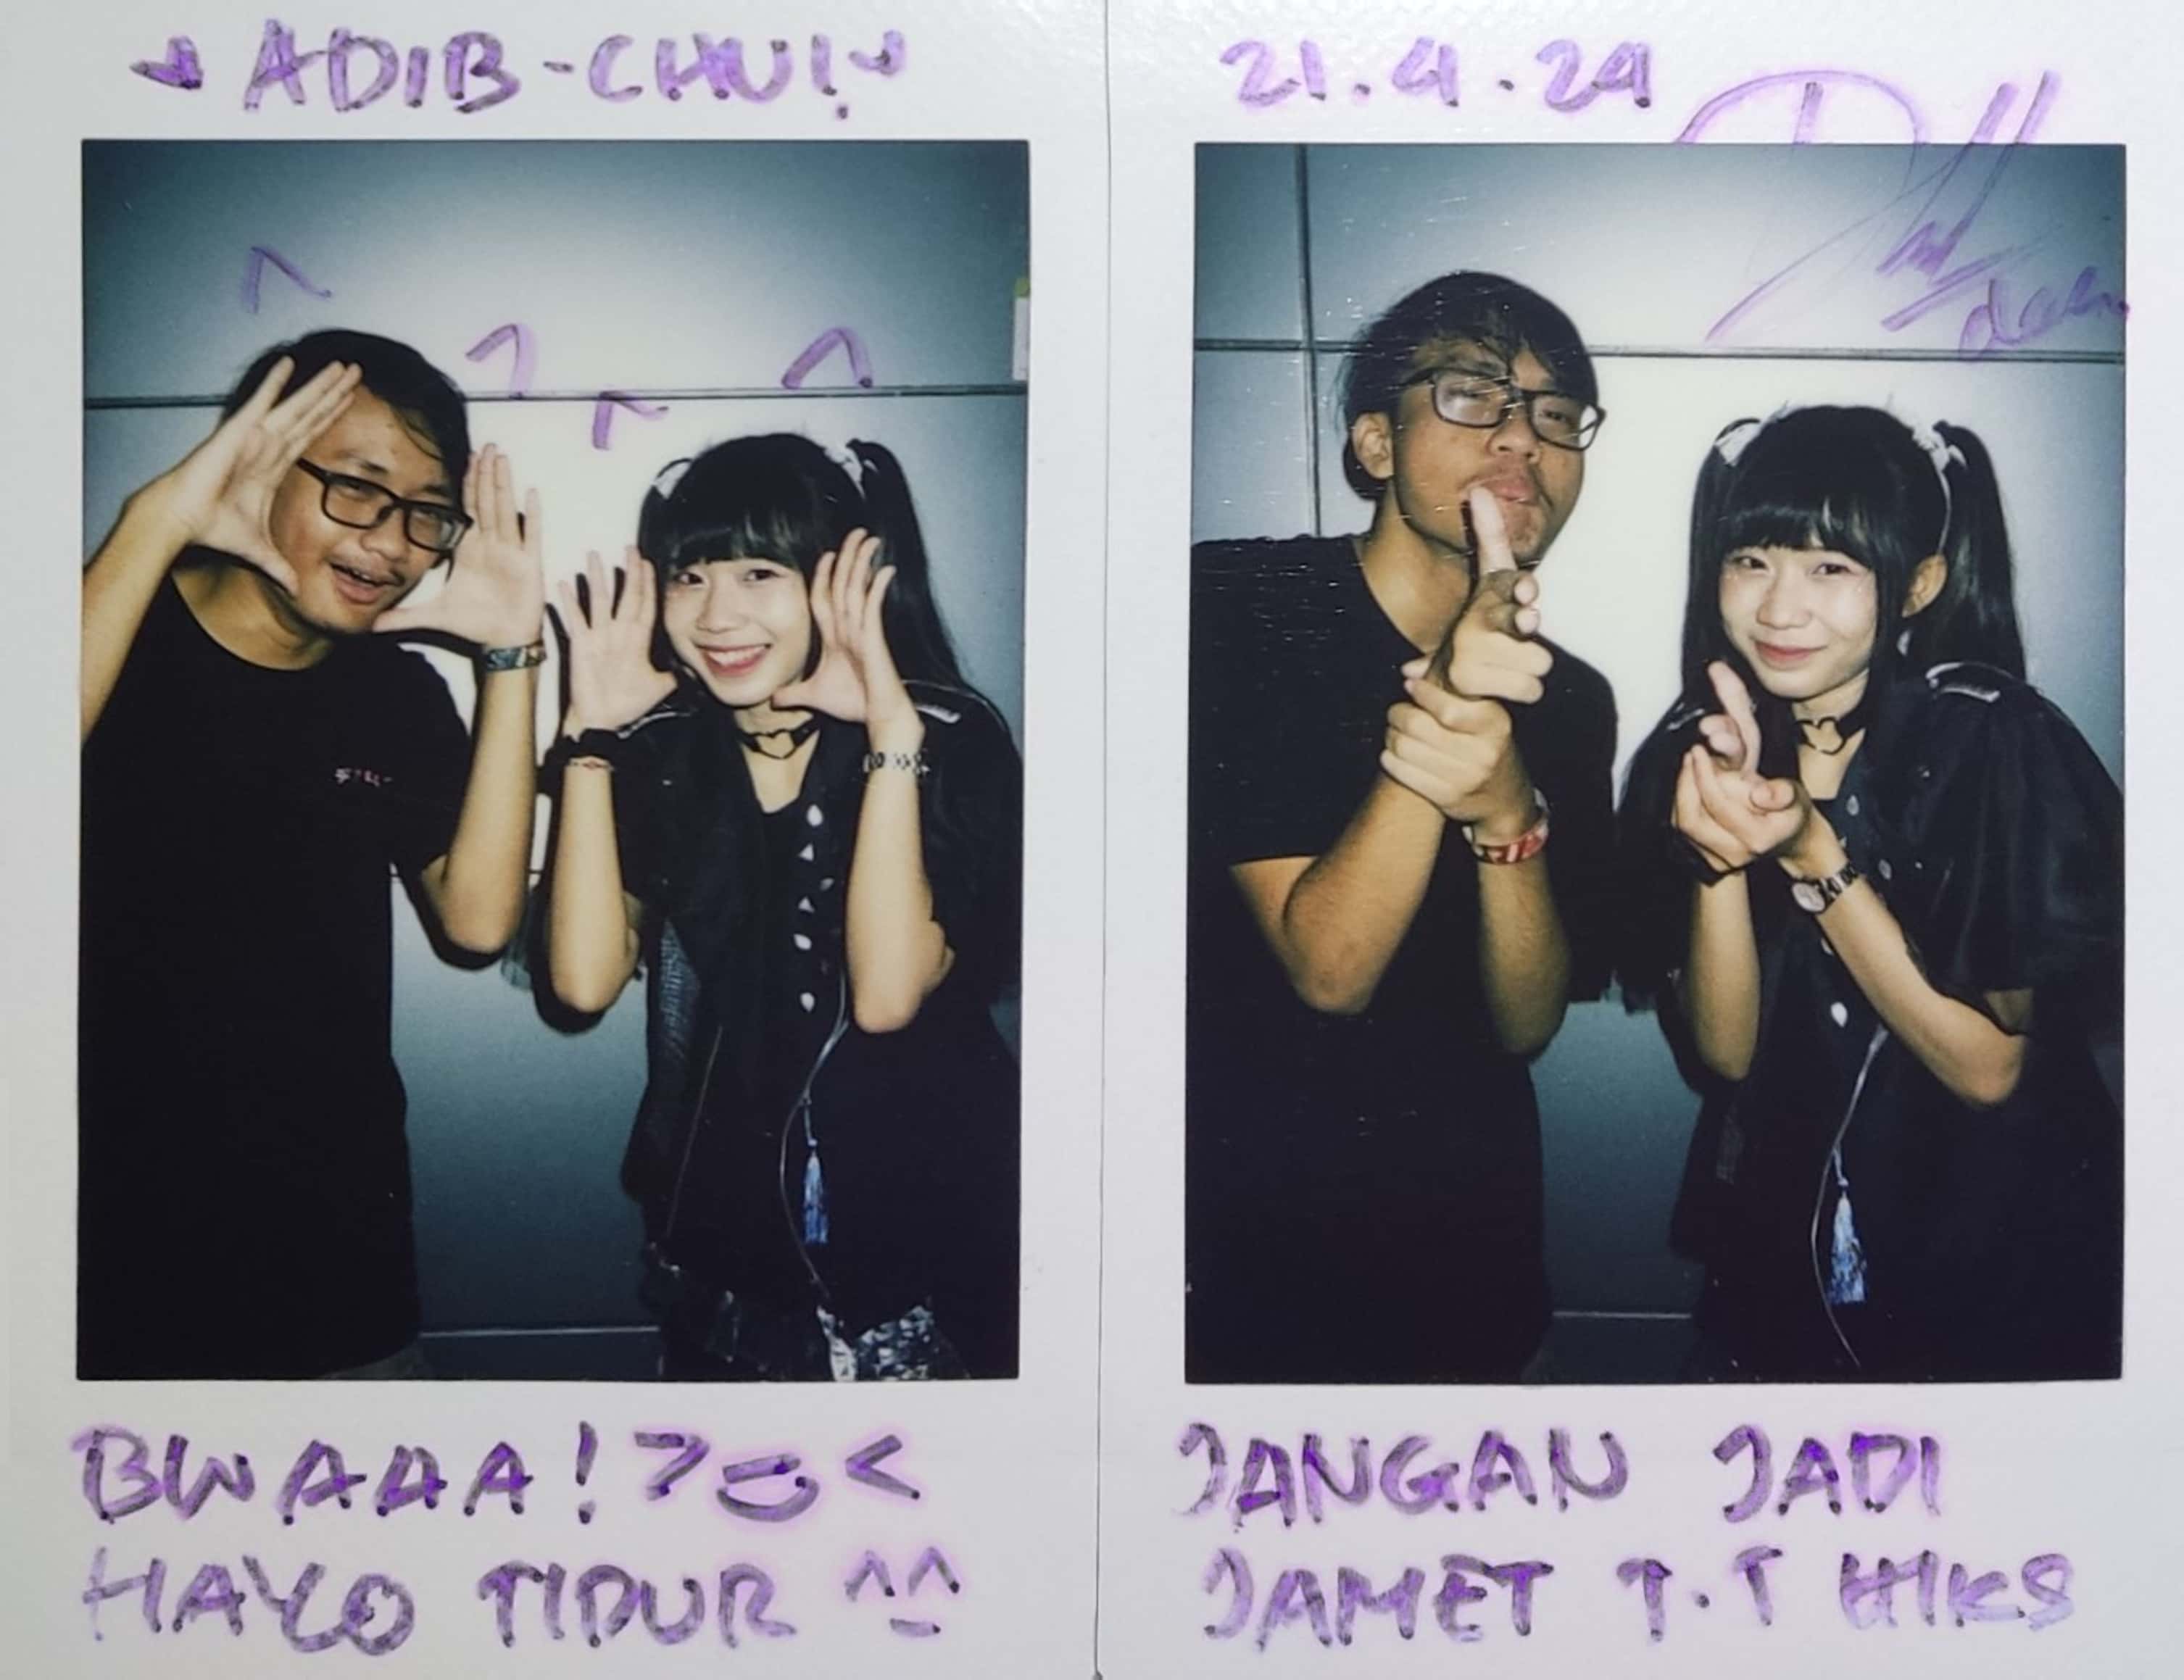 ADIB-CHU!
BWAAA! >
<
HAYO TIDUR ^_^
21.4.24
JANGAN JADI
JAMET T.T HIKS